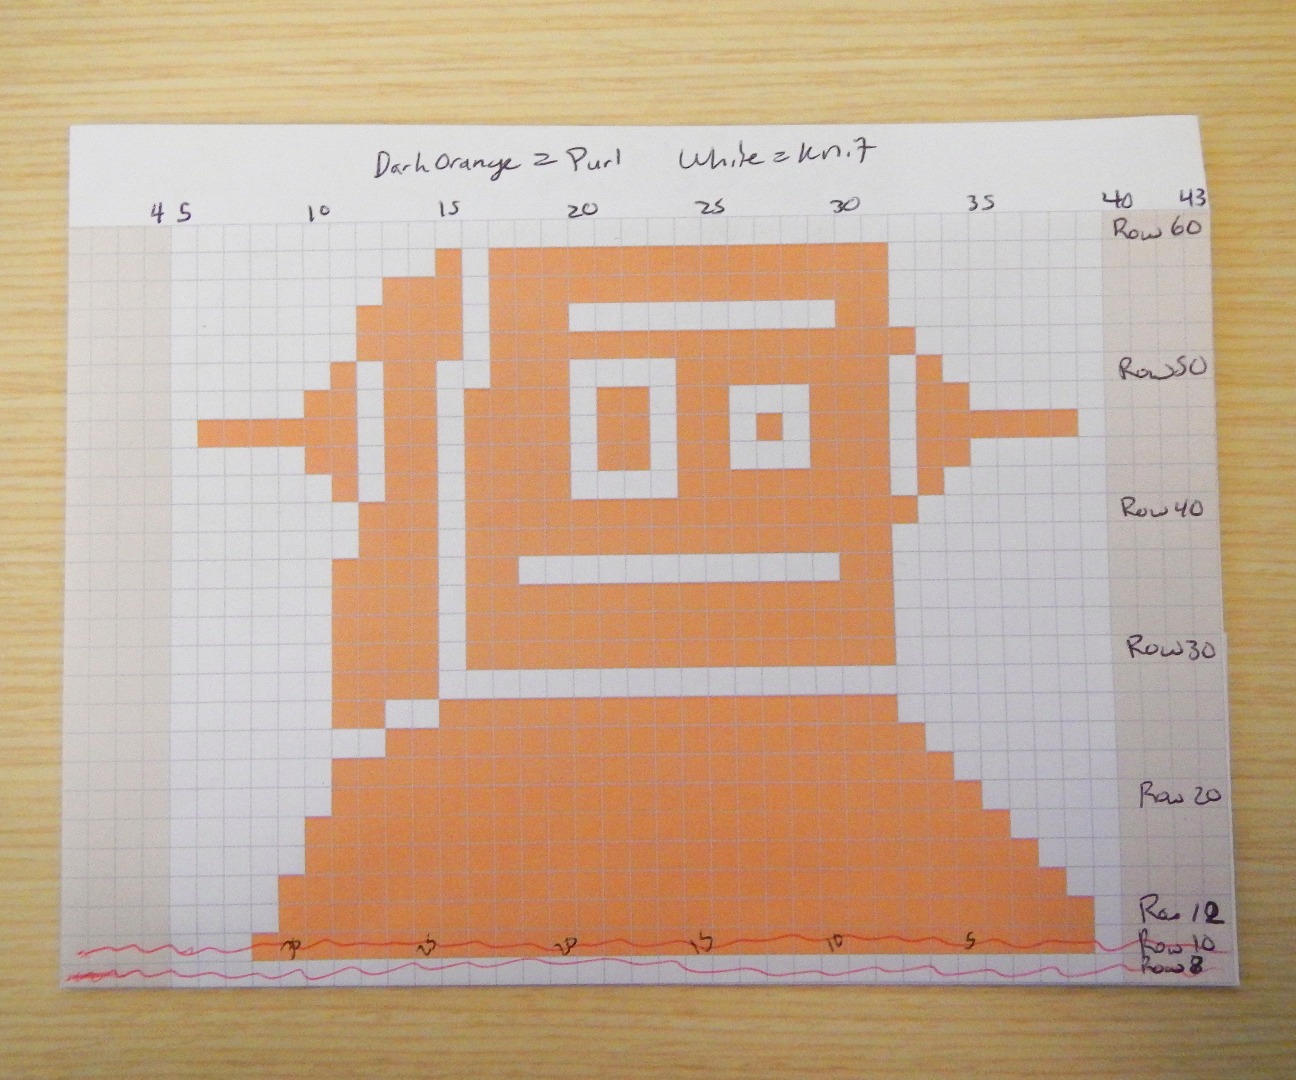 Dark Orange = Purl White = knit
4 5 10 15 20 25 30 35 40 43
Row 60
Row 50
Row 40
Row 30
Row 20
Row 12
25 20 15 10 5
Row 10
Row 8